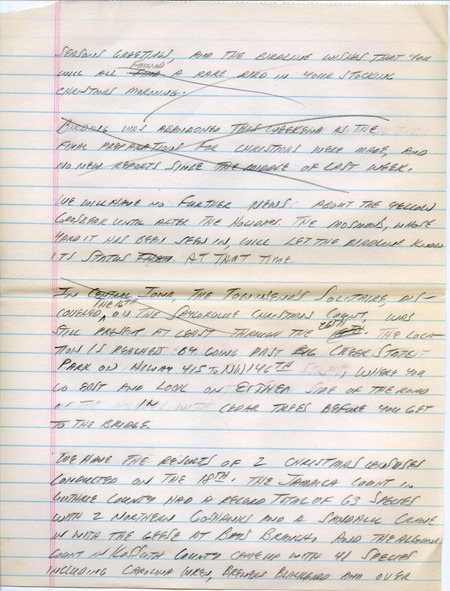 SEASONS GREETINGS, AND THE BIRDLINE WISHES THAT YOU
WILL ALL FIND FOUND A RARE BIRD IN YOUR STOCKING
CHRISTMAS MORNING.
BIRDING WAS ABANDONED THIS WEEKEND AS THE
FINAL PREPARATIONS FOR CHRISTMAS WERE MADE, AND
NO NEW REPORTS SINCE THE MIDDLE OF LAST WEEK.
WE WILL HAVE NO FURTHER NEWS ABOUT THE YELLOW
GROSBEAK UNTIL AFTER THE HOLIDAYS. THE MOSMANS, WHOSE
YARD IT HAS BEEN SEEN IN, WILL LET THE BIRDLINE KNOW
ITS STATUS AT THAT TIME.
IN CENTRAL IOWA, THE TOWNSEND'S SOLITAIRE DIS-
COVERED THE 16TH, ON THE SAYLORVILLE CHRISTMAS COUNT, WAS
STILL PRESENT AT LEAST THROUGH THE THE LOCA-
TION IS REACHED BY GOING PAST BIG CREEK STATE
PARK ON HIWAY 415 TO NW 146TH STREET, WHERE YOU
GO EAST AND LOOK ON EITHER SIDE OF THE ROAD
IN CEDAR TREES BEFORE YOU GET
TO THE BRIDGE.
WE HAVE THE RESULTS OF 2 CHRISTMAS CENSUSES
CONDUCTED ON THE 18TH. THE JAMAICA COUNT IN
GUTHRIE COUNTY HAD A RECORD TOTAL OF 63 SPECIES
WITH 2 NORTHERN GOSHAWKS AND A SANDHILL CRANE
IN WITH THE GEESE AT BAYS BRANCH, AND THE ALGONA
COUNT IN KOSSUTH COUNTY CAME UP WITH 41 SPECIES
INCLUDING CAROLINA WREN, BREWER'S BLACKBIRD AND OVER